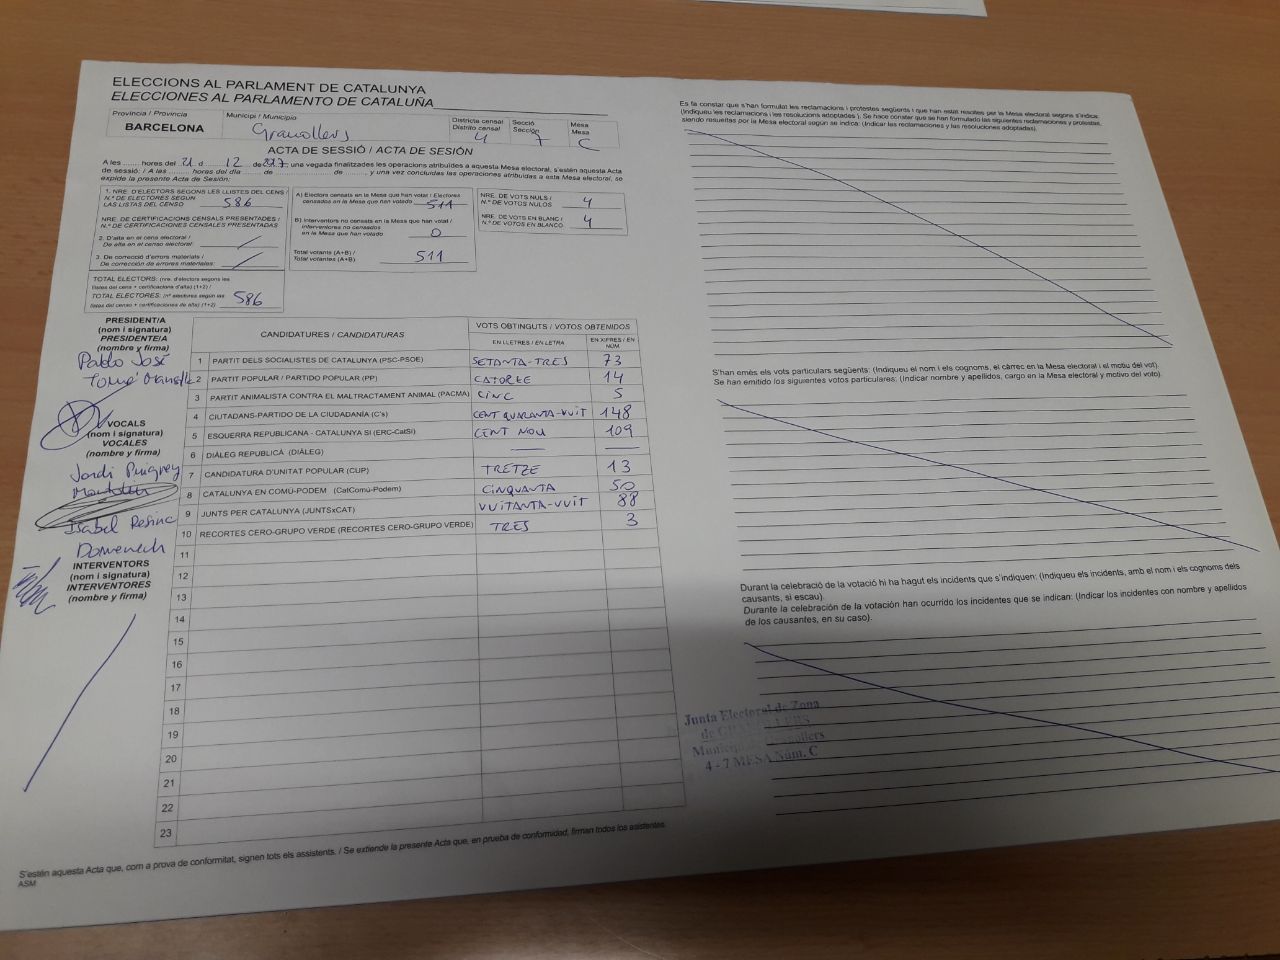 ELECCIONS AL PARLAMENT DE CATALUNYA
ELECCIONES AL PARLAMENTO DE CATALUÑA
Província / Provincia
BARCELONA
Municipi / Municipio
Granollers
Districte censal
Distrito censal
4
Secció
Sección
7
Mesa
Mesa
C
ACTA DE SESSIÓ / ACTA DE SESIÓN
A les ........ hores del 21 d 12 de 2017, una vegada finalitzades les operacions atribuïdes a aquesta Mesa electoral, s'estén aquesta Acta
de sessió: / A las ......... horas del día ........ de ........ de ........, y una vez concluidas las operaciones atribuidas a esta Mesa electoral, se
expide la presente Acta de Sesión:
1. NRE. D'ELECTORS SEGONS LES LLISTES DEL CENS /
N.º DE ELECTORES SEGÚN
LAS LISTAS DEL CENSO 586
NRE. DE CERTIFICACIONS CENSALS PRESENTADES /
N.º DE CERTIFICACIONES CENSALES PRESENTADAS
2. D'alta en el cens electoral /
De alta en el censo electoral: /
3. De correcció d'errors materials /
De corrección de errores materiales: /
TOTAL ELECTORS: (nre. d'electors segons les
llistes del cens + certificacions d'alta) (1+2) /
TOTAL ELECTORES: (nº electores según las
listes del censo + certificaciones de alta) (1+2) 586
A) Electors censats en la Mesa que han votat / Electores
censados en la Mesa que han votado 511
B) Interventors no censats en la Mesa que han votat /
Interventores no censados
en la Mesa que han votado 0
Total votants (A+B) /
Total votantes (A+B) 511
NRE. DE VOTS NULS /
N.º DE VOTOS NULOS 4
NRE. DE VOTS EN BLANC /
N.º DE VOTOS EN BLANCO 4
PRESIDENT/A
(nom i signatura)
PRESIDENTE/A
(nombre y firma)
Pablo José
VOCALS
(nom i signatura)
VOCALES
(nombre y firma)
Jordi
Isabel
Domenech
INTERVENTORS
(nom i signatura)
INTERVENTORES
(nombre y firma)
CANDIDATURES / CANDIDATURAS
VOTS OBTINGUTS / VOTOS OBTENIDOS
EN LLETRES / EN LETRA
EN XIFRES / EN NÚM.
1 PARTIT DELS SOCIALISTES DE CATALUNYA (PSC-PSOE) SETANTA-TRES 73
2 PARTIT POPULAR / PARTIDO POPULAR (PP) CATORZE 14
3 PARTIT ANIMALISTA CONTRA EL MALTRACTAMENT ANIMAL (PACMA) CINC 5
4 CIUTADANS-PARTIDO DE LA CIUDADANÍA (C's) CENT QUARANTA-VUIT 148
5 ESQUERRA REPUBLICANA - CATALUNYA SÍ (ERC-CatSí) CENT NOU 109
6 DIÀLEG REPUBLICÀ (DIÀLEG) — —
7 CANDIDATURA D'UNITAT POPULAR (CUP) TRETZE 13
8 CATALUNYA EN COMÚ-PODEM (CatComú-Podem) CINQUANTA 50
9 JUNTS PER CATALUNYA (JUNTSxCAT) VUITANTA-VUIT 88
10 RECORTES CERO-GRUPO VERDE (RECORTES CERO-GRUPO VERDE) TRES 3
11
12
13
14
15
16
17
18
19
20
21
22
23
S'estén aquesta Acta que, com a prova de conformitat, signen tots els assistents. / Se extiende la presente Acta que, en prueba de conformidad, firman todos los asistentes.
ASM
Es fa constar que s'han formulat les reclamacions i protestes següents i que han estat resoltes per la Mesa electoral segons s'indica:
(Indiqueu les reclamacions i les resolucions adoptades). Se hace constar que se han formulado las siguientes reclamaciones y protestas,
siendo resueltas por la Mesa electoral según se indica: (Indicar las reclamaciones y las resoluciones adoptadas).
S'han emès els vots particulars següents: (Indiqueu el nom i els cognoms, el càrrec en la Mesa electoral i el motiu del vot).
Se han emitido los siguientes votos particulares: (Indicar nombre y apellidos, cargo en la Mesa electoral y motivo del voto).
Durant la celebració de la votació hi ha hagut els incidents que s'indiquen: (Indiqueu els incidents, amb el nom i els cognoms dels
causants, si escau).
Durante la celebración de la votación han ocurrido los incidentes que se indican: (Indicar los incidentes con nombre y apellidos
de los causantes, en su caso).
Junta Electoral de Zona
de GRANOLLERS
Municipi Granollers
4 - 7 MESA Núm. C